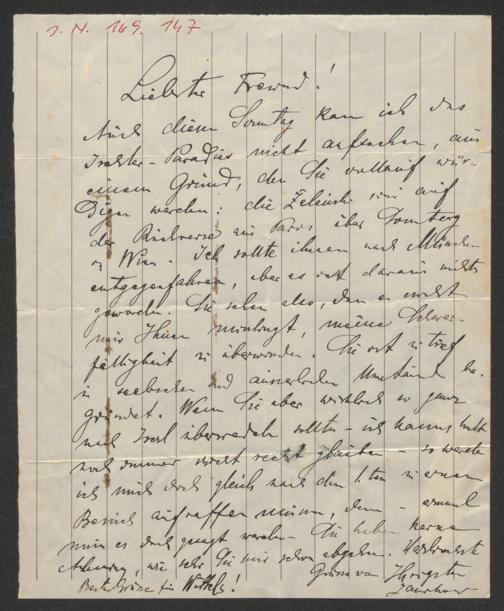 J. N. 169.147
Liebster Freund!
Auch diesen Sonntag kann ich das
Ischler-Paradies nicht aufsuchen, aus
einem Grund, den Sie vollauf wür-
digen werden: die Zelinski sind auf
der Rückreise aus Paris über Sonntag
in Wien. Ich sollte ihnen nach München
entgegenfahren, aber es ist daraus nichts
geworden. Sie sehen also, dass es nicht
nur Ihnen misslingt, meine Schwer-
fälligkeit zu überwinden. Sie ist zu tief
in seelischen und äusserlichen Umständen be-
gründet. Wenn Sie aber wirklich so ganz
nach Ischl übersiedeln sollten - ich kanns halt
noch immer nicht recht glauben - so werde
ich mich doch gleich nach dem 1.ten zu einem
Besuch aufraffen müssen, denn - einmal
muss es doch gesagt werden - Sie haben keine
Ahnung, wie sehr Sie mir schon abgehen. Herzlichste
Grüsse von Ihrigstem
Beste Grüsse für Wittels!